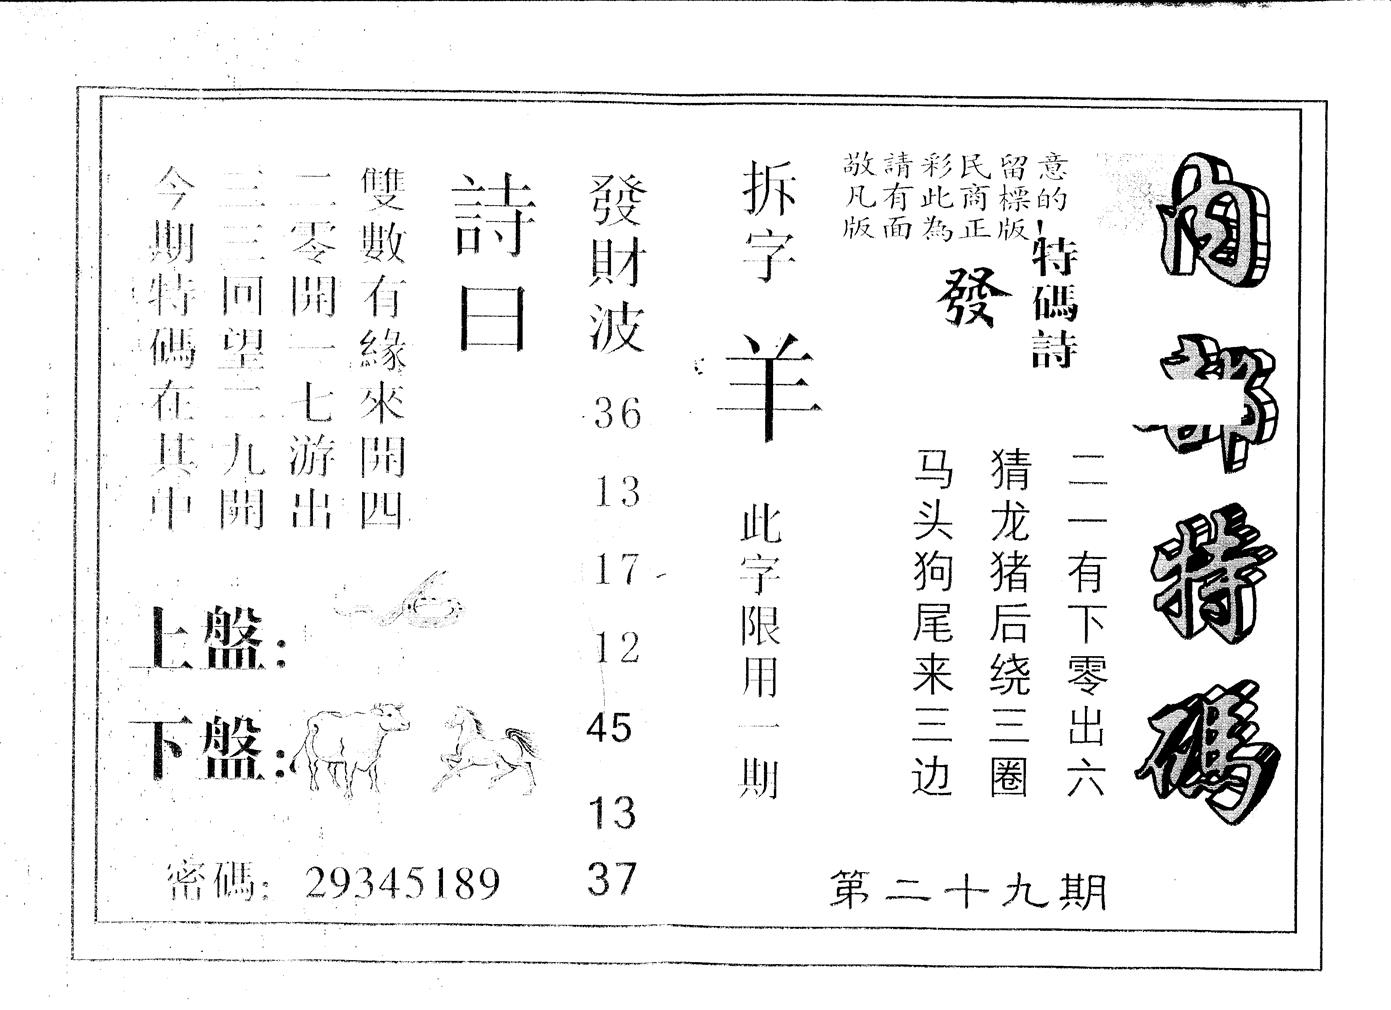 內部特碼
敬請彩民留意
凡有此商標的
版面為正版!
特碼詩
發
二一有下零出六
猜龙猪后绕三圈
马头狗尾来三边
第二十九期
拆字
羊
此字限用一期
發財波
36
13
17
12
45
13
37
詩曰
雙數有緣來開四
二零開一七游出
三三回望二九開
今期特碼在其中
上盤:
下盤:
密碼: 29345189